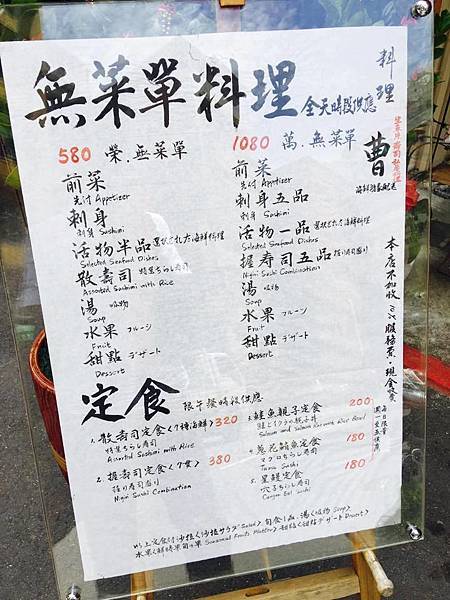 無菜單料理 全天時段供應
料理
曹
580 榮.無菜單
前菜
先付 Appetizer
刺身
刺身 Sashimi
活物半品
Selected Seafood Dishes
散壽司 特製ちらし寿司
Assorted Sashimi with Rice
湯 吸物
Soup
水果 フルーツ
Fruit
甜點 デザート
Dessert
1080 萬.無菜單
前菜
先付 Appetizer
刺身五品
刺身 Sashimi
活物一品
Selected Seafood Dishes
握壽司五品 握り寿司盛り
Nigiri Sushi Combination
湯 吸物
Soup
水果 フルーツ
Fruit
甜點 デザート
Dessert
本店不加收10%服務費,現金收費
定食 限午餐時段供應
1.散壽司定食<7種海鮮> 320
特製ちらし寿司
Assorted Sashimi with Rice
2.握壽司定食<7貫> 380
握り寿司盛り
Nigiri Sushi Combination
3.鮭魚親子定食 200
鮭とイクラの親子丼
Salmon and Salmon Roe with Rice Bowl
4.蔥花鮪魚定食 180
マグロちらし寿司
Tuna Sushi
5.星鰻定食 180
穴子ちらし寿司
Conger Eel Sushi
每日限量
週一至五供應
以上定食付沙拉<沙拉サラダ Salad> 旬食1品.湯<吸物 Soup>
水果<鮮時果旬の単 Seasonal Fruits Platter> 甜點<甜點デザート Dessert>